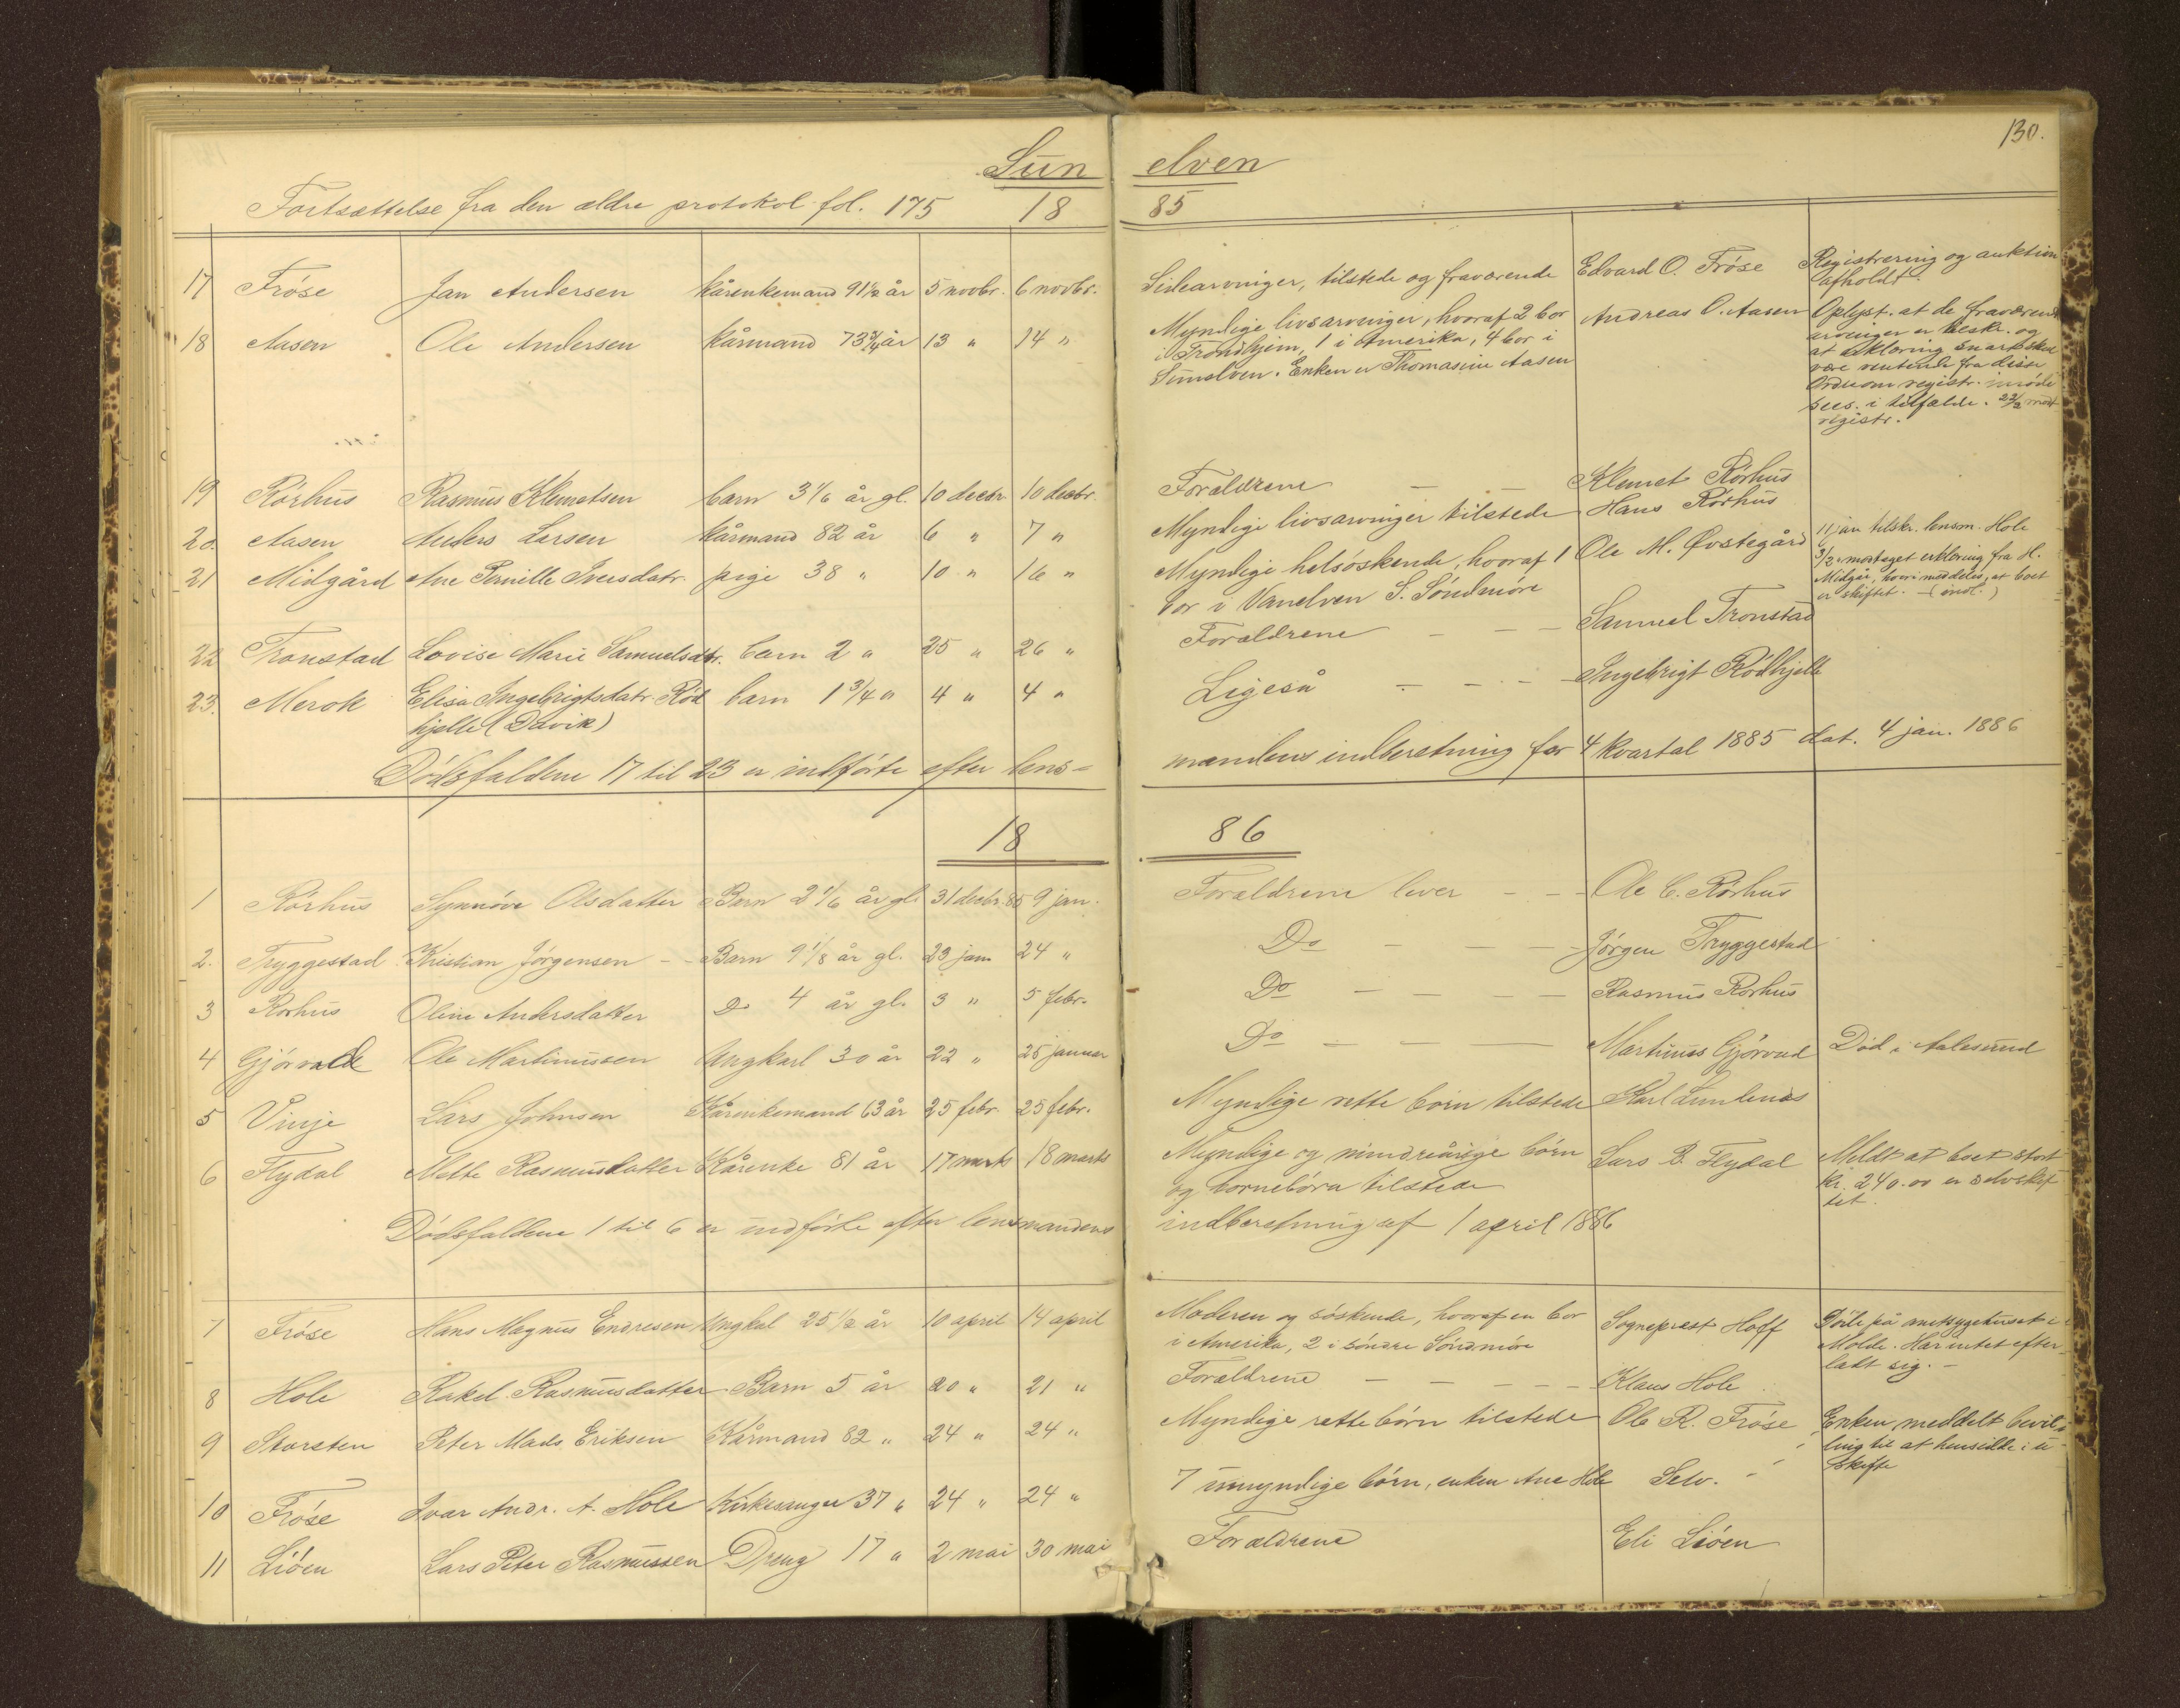 130.
Sun elven
Fortsættelse fra den ældre protokol fol. 175 18 85
17 Frøse Jan Andersen kårenkemand 91½ år 5 novbr. 6 novbr. Sidearvinger, tilstede og fraværende Edvard O. Frøse Registrering og auktion
afholdt.
18 Aasen Ole Andersen kårmand 73¾ år 13 " 14 " Myndige livsarvinger, hvoraf 2 bor Andreas O. Aasen Oplyst. at de fraværende
i Trondhjem, 1 i Amerika, 4 bor i arvinger er beskr. og
Sunelven. Enken er Thomasine Aasen at erklæring snart skal
være ventende fra disse
Ordre om registr. imøde
sees i tilfælde. 23/2 modt
registr.
19 Rörhus Rasmus Klemetsen barn 3 1/6 år gl. 10 decbr 10 decbr. Forældrene — — Klemet Rörhus
20. Aasen Anders Larsen kårmand 82 år 6 " 7 " Myndige livsarvinger tilstede Hans Rörhus
21 Midgård Ane Pernille Iversdatr. pige 38 " 10 " 16 " Myndige helsöskende, hvoraf 1 Ole M. Øvstegård 11 jan tilskr. lensm. Hole
bor i Vanelven S. Söndmöre 3/2 modtaget erklæring fra H.
Midgår, hvori meddeles, at boet
er skiftet. —
22 Tronstad Lovise Marie Samuelsdtr. barn 2 " 25 " 26 " Forældrene — — — Samuel Tronstad
23. Merok Elisa Ingebrigtsdatr. Röd barn 1 3/4 " 4 " 4 " Ligeså — — — Ingebrigt Rödhjelle
hjelle (Davik)
Dödsfaldene 17 til 23 er indförte efter lens=mandens indberetning for 4 kvartal 1885 dat. 4 jan. 1886
18 86
1 Rörhus Synnöve Olsdatter Barn 2 1/6 år gl. 31 decbr. 85 9 jan. Forældrene lever — — Ole C. Rörhus
2. Tryggestad Kristian Jörgensen — Barn 9 1/8 år gl. 23 jan. 24 " Do — — — Jörgen Tryggestad
3 Rörhus Oline Andersdatter Do 4 år gl. 3 " 5 febr. Do — — — — Rasmus Rörhus
4 Gjörvald Ole Martinussen Ungkarl 30 år 22 " 25 januar Do — — — — Martinus Gjörvad Död i Aalesund
5 Vinje Lars Johnsen Kårenkemand 63 år 25 febr. 25 febr. Myndige rette börn tilstede Karl
6 Flydal Mette Rasmusdatter Kårenke 81 år 17 marts 18 marts Myndige og mindreårige börn Lars B. Flydal Meldt at boet stort
og börnebörn tilstede kr. 240.00 er selvskif
tet.
Dödsfaldene 1 til 6 er indförte efter lensmandens indberetning af 1 april 1886
7 Fröse Hans Magnus Endresen Ungkal 25 1/2 år 10 april 14 april Moderen og söskende, hvoraf en bor Sogneprest Hoff Döde på amtsygehuset i
i Amerika, 2 i söndre Söndmöre Molde. Har intet efter
ladt sig. —
8 Hole Rakel Rasmusdatter Barn 5 år 20 " 21 " Forældrene — — — — Klaus Hole
9 Storsten Peter Mads Eriksen Kårmand 82 " 24 " 24 " Myndige rette börn tilstede Ole R. Fröse Enken meddelt bevil=
ling til at hensidde i u-
skifte
10 Fröse Ivar Andr. A. Hole Kirkesanger 37 " 24 " 24 " 7 umyndige börn, enken Ane Hole Selv.
11 Liöen Lars Peter Rasmussen Dreng 17 " 2 mai 30 mai Forældrene Eli Liöen